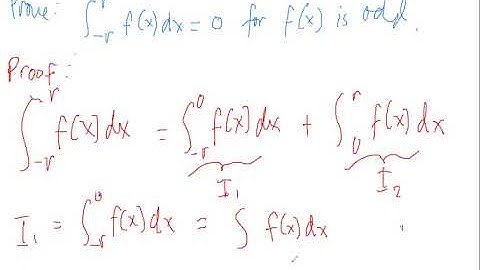 Prove: ∫_{-r}^{r} f(x)dx = 0 for f(x) is odd.
Proof:
∫_{-r}^{r} f(x)dx = ∫_{-r}^{0} f(x)dx + ∫_{0}^{r} f(x)dx
I₁ I₂
I₁ = ∫_{-r}^{0} f(x)dx = ∫ f(x)dx